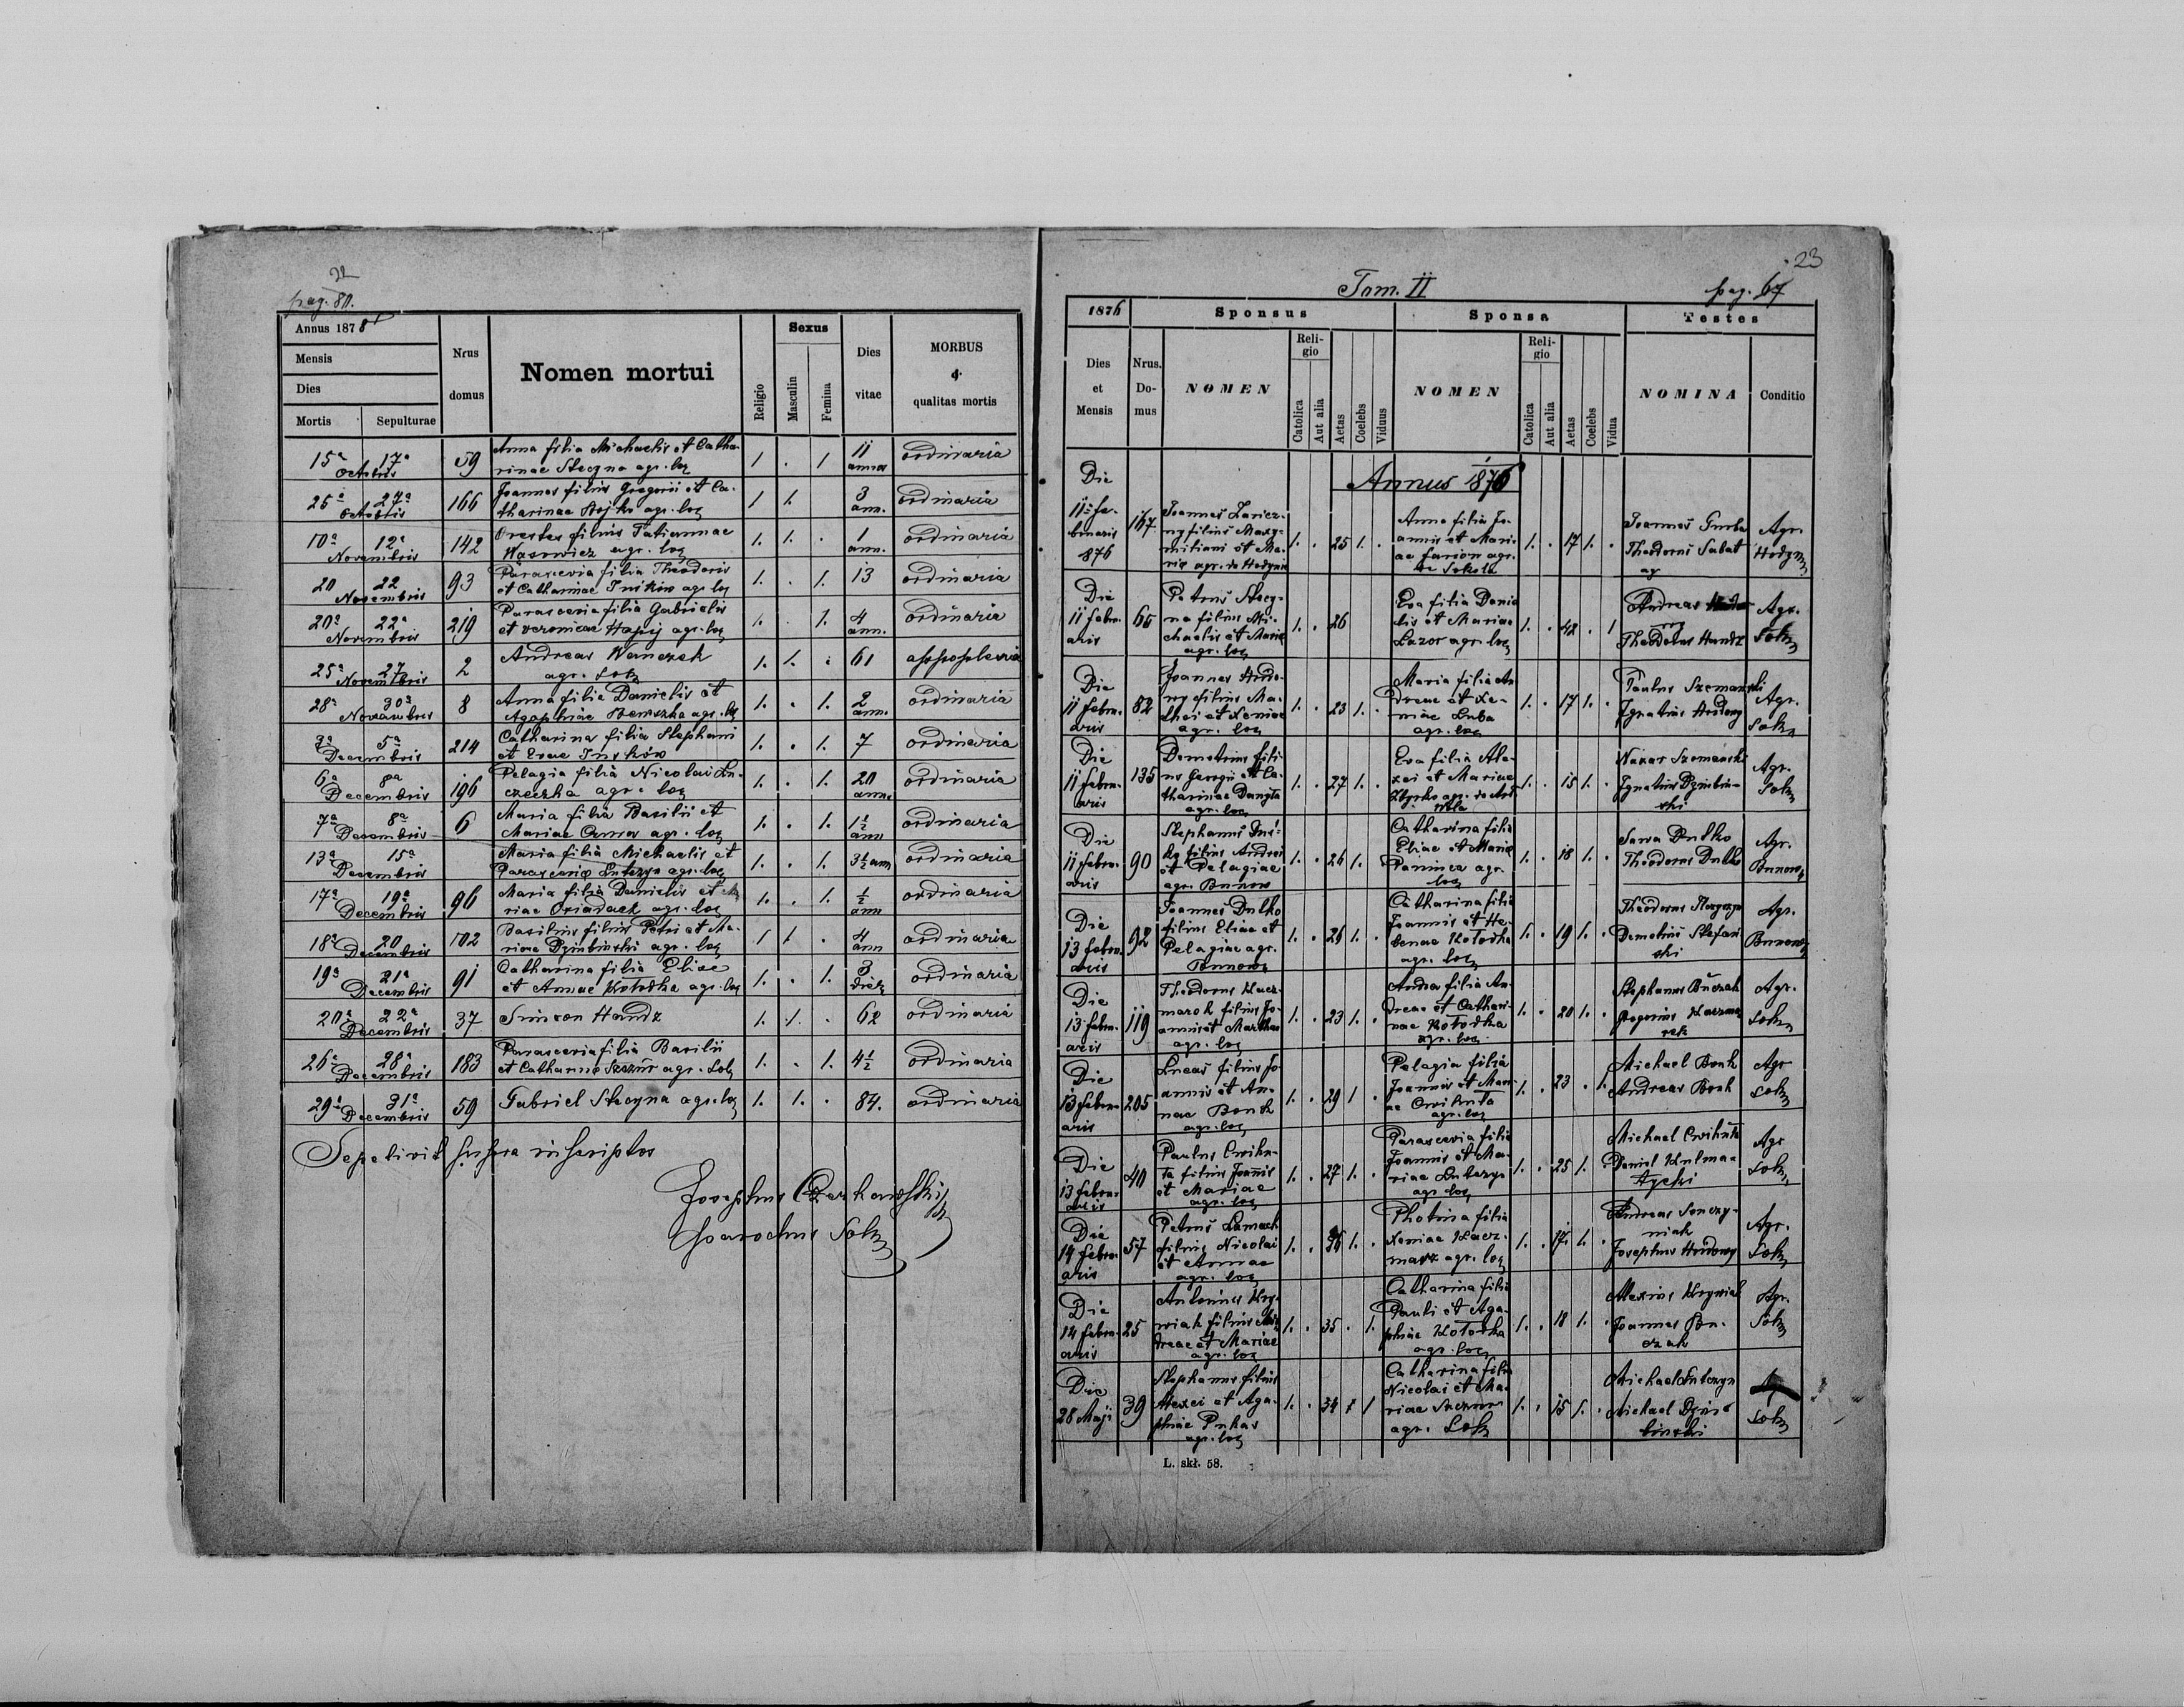 22
pag. 80.
Annus 1878
Mensis
Dies
Mortis
Sepulturae
Nrus
domus
Nomen mortui
Religio
Sexus
Masculin
Femina
Dies
vitae
MORBUS
&
qualitas mortis
15ª 17ª Octobris 59 Anna filia Michaelis et Catha-
rinae Stecyna agr. loc 1 . 1 11 annor ordinaria
25ª 27ª Octobris 166 Joannes filius Gregorii et Ca-
tharinae Bojko agr. loc 1 1. 3 ann. ordinaria
10ª 12ª Novembris 142 Orestes filius Tatiannae
agr. loc 1. 1. . 1 ann. ordinaria
20 22 Novembris 93 Parascevia filia Theodoris
et Catharinae agr loc 1. . 1. 13 ordinaria
20ª 22ª Novembris 219 Parascevia filia Gabrielis
et Veronicae Hapij agr. loc 1. 1. 4 ann. ordinaria
25ª 27 Novembris 2 Andreas
agr. Sok 1. 1. . 61 appoplexia
28ª 30ª Novembris 8 Anna filia Danielis et
Agaphiae agr. loc 1. . 1. 2 ann. ordinaria
3ª 5ª Decembris 214 Catharina filia Stephani
et Evae 1. . 1. 7 ordinaria
6ª 8ª Decembris 196 Pelagia filia Nicolai Lu-
czeczka agr. loc 1. . 1. 20 ann. ordinaria
7ª 8ª Decembris 6 Maria filia Basilii et
Mariae agr. loc 1. . 1. 1½ ann ordinaria
13ª 15ª Decembris Maria filia Michaelis et
Parasceviae Lutczyn agr. loc 1. . 1. 3½ ann ordinaria
17ª 19ª Decembris 96 Maria filia Danielis et Ma
riae Osiadacz agr. loc 1. . 1. ½ ann ordinaria
18ª 20 Decembris 102 Basilius filius Petri et Ma-
riae Dziubinski agr. loc 1 1. . 4 ann ordinaria
19ª 21ª Decembris 91 Catharina filia Eliae
et Annae Kołodka agr. loc 1. . 1. 3 ordinaria
20ª 22ª Decembris 37 Simeon Handz 1. 1. . 62 ordinaria
26ª 28ª Decembris 183 Parascevia filia Basilii
et Catharinae Szczur agr. Sok 1. . 1. 4½ ordinaria
29ª 31ª Decembris 59 Gabriel Stecyna agr. loc 1. 1. . 84. ordinaria
Sepelivit supra inscriptos
Josephus Czerkawski
parochus Sok
23
Tom. II
pag. 67
1876
Sponsus
Sponsa
Testes
Dies
et
Mensis
Nrus.
Do-
mus
NOMEN
Reli-
gio
Catolica
Aut alia
Aetas
Coelebs
Viduus
NOMEN
Reli-
gio
Catolica
Aut alia
Aetas
Coelebs
Vidua
NOMINA
Conditio
Annus 1876
Die
11 fe-
bruaris
876
167
Joannes
filius Maxy-
miliani et Ma-
riae agr. de
1. . 25 1. .
Anna filia Jo-
annis et Mari-
ae agr.
de Sokola
1. . 17 1. .
Joannes
Theodorus Salat
Agr.
Die
11 febru-
aris
65
Petrus Stecy-
na filius Mi-
chaelis et Mariae
agr. loc
1. . 26
Eva filia Danie
lis et Mariae
Lazor agr. loc
1. . 42 . 1
Andreas
Theodorus Handz
Agr.
Sok
Die
11 febru-
aris
82
Joannes Hrudo-
wy filius Ma-
thei et Xeniae
agr. loc
1. . 23 1. .
Maria filia An
dreae et Xe-
niae Luba
agr. loc
1. . 17 1. .
Paulus Szemanski
Ignatius Hrudowy
Agr.
Sok
Die
11 febru-
aris
135
Demetrius fili-
us Georgii et Ca-
tharinae
agr. loc
1. . 27 1. .
Eva filia Ale-
xei et Mariae
agr. de
Wola
1. . 15 1. .
Nazar Szemanski
Ignatius Dziubin-
ski
Agr.
Sok
Die
11 febru-
aris
90
Stephanus
filius Andrei
et Pelagiae
agr. Bunow
1. . 26 1.
Catharina filia
Eliae et Mariae
agr.
loc
1. . 18 1. .
Sawa Dulko
Theodorus Dulko
Agr.
Bunow
Die
13 febru-
aris
92
Joannes Dulko
filius Eliae et
Pelagiae agr.
Bunow
1. . 26 1. .
Catharina filia
Joannis et He-
lenae Kołodka
agr. loc
1. . 19 1. .
Theodorus
Demetrius Stefan
ski
Agr.
Bunow
Die
13 febru-
aris
119
Theodorus Kacz-
marek filius Jo-
annis et Marthae
agr. loc
1. . 23 1. .
Anna filia An-
dreae et Cathari-
nae Kołodka
agr. loc
1. . 20 1. .
Stephanus Buczak
Gregorius Kaczma
rek
Agr.
Sok
Die
13 febru-
aris
205
Lucas filius Jo
annis et An-
nae Bonk
agr. loc
1. . 29 1 .
Pelagia filia
Joannis et Mari-
ae Cwikuta
agr. loc
1. . 23 . 1.
Michael Bonk
Andreas Bonk
Agr
Sok
Die
13 febru-
aris
40
Paulus Cwiku-
ta filius Joannis
et Mariae
agr. loc
1. . 27 1. .
Parascevia filia
Joannis et Ma-
riae Lutczyn
agr. loc
1. . 25 1. .
Michael Cwikuta
Daniel Kulma-
tycki
Agr
Sok
Die
14 febru-
aris
57
Petrus Lamach
filius Nicolai
et Annae
agr. loc
1. . 36 1. .
Photina filia
Xeniae Kacz-
marz agr. loc
1. . 17 1. .
Andreas Senczy-
niak
Josephus Hrudowy
Agr.
Sok
Die
14 febru-
aris
25
Antonius Kry-
wiak filius An-
dreae et Mariae
agr. loc
1. . 35 . 1.
Catharina filia
Pauli et Aga-
phiae Kołodka
agr. loc
1. . 18 1. .
Alexius Krywiak
Joannes Bu-
czak
Agr.
Sok
Die
28 Maji
39
Stephanus filius
Alexei et Aga-
phiae Pukas
agr. loc
1. . 34 1
Catharina filia
Nicolai et Ma-
riae Szczur
agr. Sok
1. . 15 1. .
Michael Lutczyn
Michael Dziu-
binski
Sok
L. skł. 58.